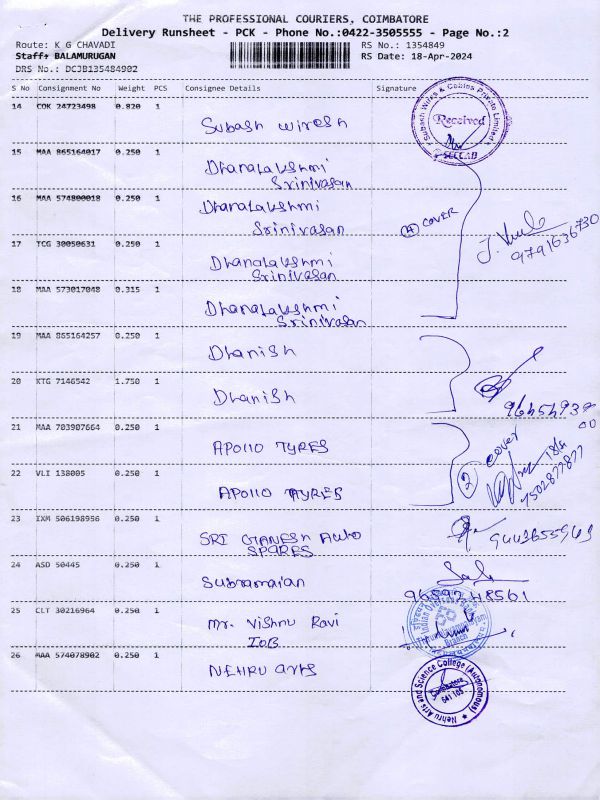 THE PROFESSIONAL COURIERS, COIMBATORE
Delivery Runsheet - PCK - Phone No.:0422-3505555 - Page No.:2
Route: K G CHAVADI RS No.: 1354849
Staff: BALAMURUGAN RS Date: 18-Apr-2024
DRS No.: DCJB135484902
S No Consignment No Weight PCS Consignee Details Signature
14 COK 24723498 0.820 1 Subash wiresh
Subash Wires & Cables Private Limited
Received
15 MAA 865164017 0.250 1 Dhanalakshmi
Srinivasan
16 MAA 574800018 0.250 1 Dhanalakshmi
Srinivasan
4 COVER
17 TCG 30050631 0.250 1 Dhanalakshmi
Srinivasan
9791636730
18 MAA 573017048 0.315 1 Dhanalakshmi
Srinivasan
19 MAA 865164257 0.250 1 Dhanish
20 KTG 7146542 1.750 1 Dhanish
21 MAA 703907664 0.250 1 APOllO TYRES
2 cover
18/4
7502877877
22 VLI 138005 0.250 1 APOllO TYRES
23 IXM 506198956 0.250 1 SRI GANESH Auto
SPARES
9443655943
24 ASD 50445 0.250 1 Subramaian
9659748561
25 CLT 30216964 0.250 1 Mr. Vishnu Ravi
IOB
Indian Overseas Bank
Branch
26 MAA 574078902 0.250 1 NEHRU arts
Nehru Arts and Science College (Autonomous)
Coimbatore
641 105